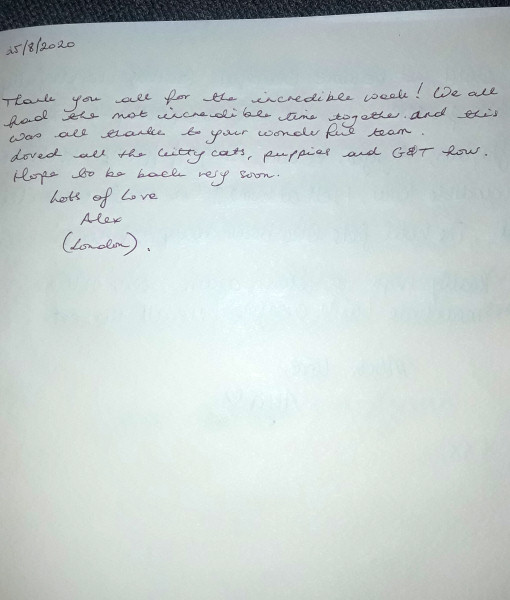 25/8/2020
Thank you all for the incredible week! We all
had the most incredible time together and this
was all thanks to your wonderful team.
Loved all the kitty cats, puppies and G&T hour.
Hope to be back very soon.
Lots of Love
Alex
(London).